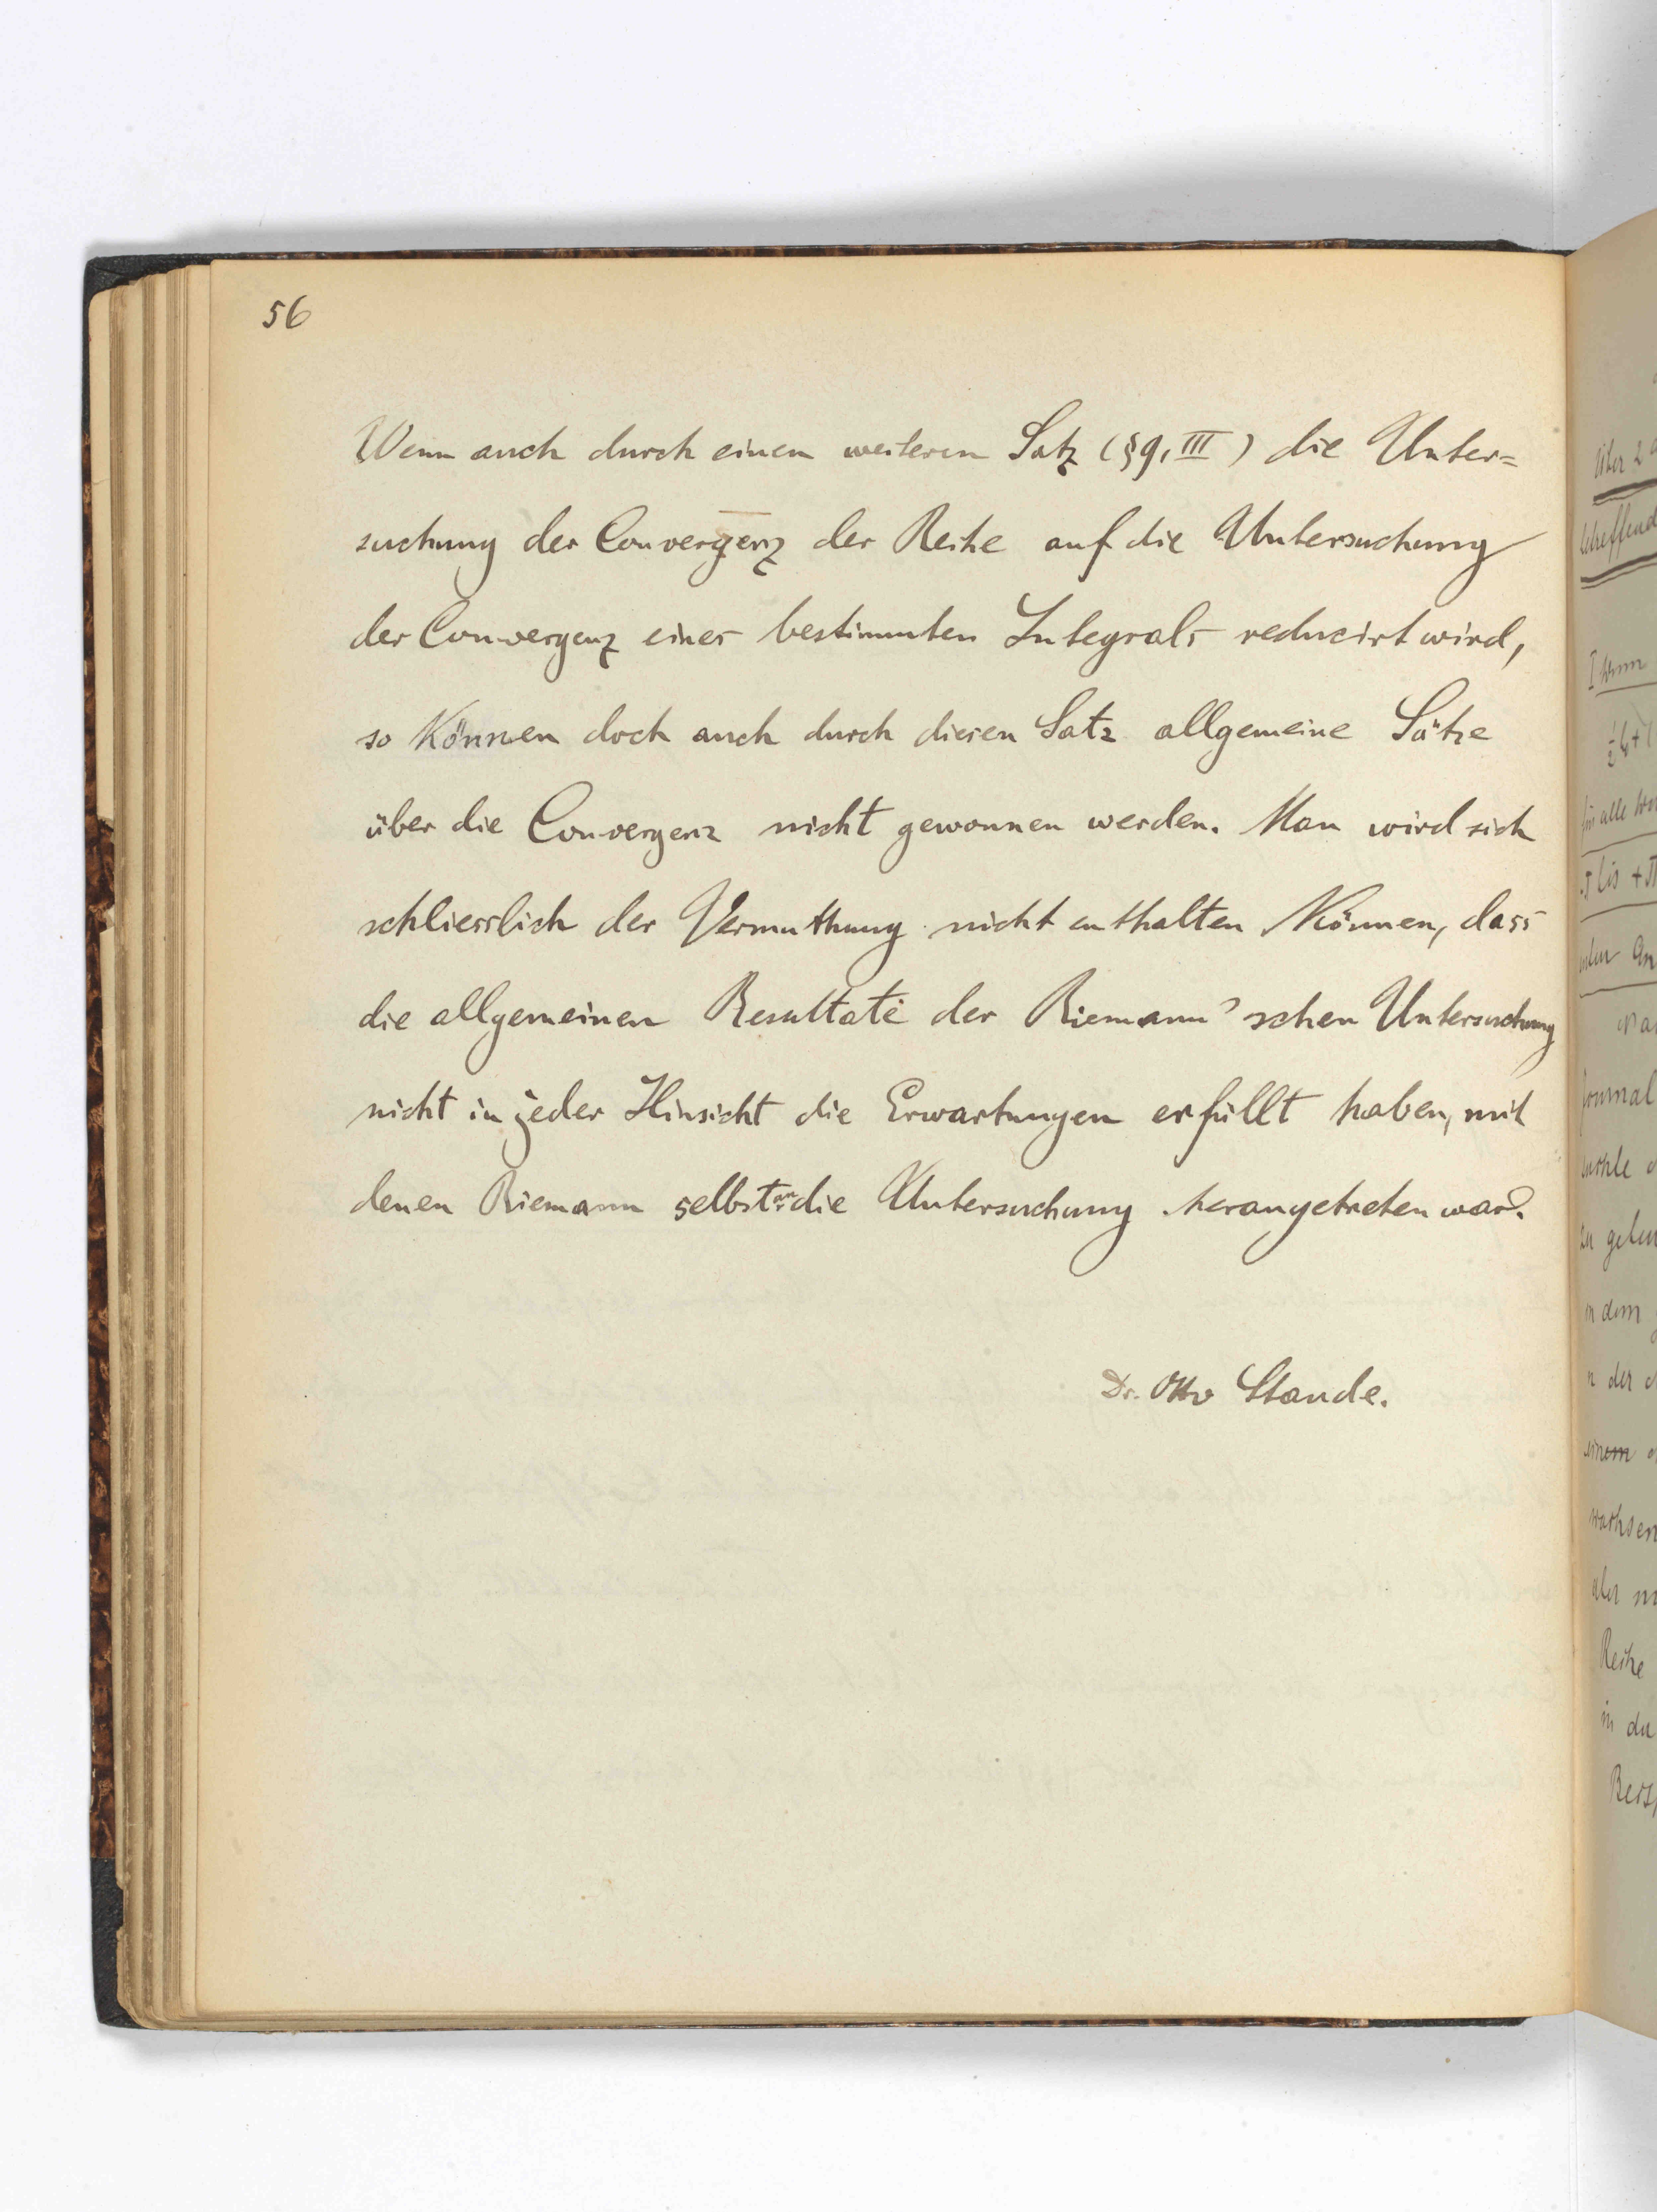 56
Wenn auch durch einen weiteren Satz (§9, III) die Unter=
suchung der Convergenz der Reihe auf die Untersuchung
der Convergenz eines bestimmten Integrals reducirt wird,
so können doch auch durch diesen Satz allgemeine Sätze
über die Convergenz nicht gewonnen werden. Man wird sich
schliesslich der Vermuthung nicht enthalten können, dass
die allgemeinen Resultate der Riemann'schen Untersuchung
nicht in jeder Hinsicht die Erwartungen erfüllt haben, mit
denen Riemann selbst an die Untersuchung herangetreten war.
Dr. Otto Staude.
über 2
betreffend
I
für alle
bis + π
Journal
in dem
n der
einem
wachsen
aber
Reihe
in